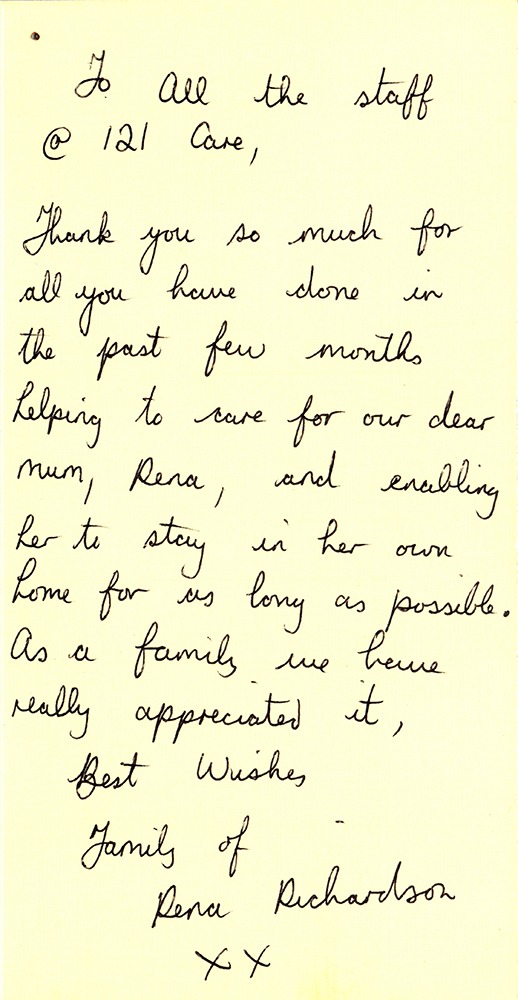 To All the staff
@ 121 Care,
Thank you so much for
all you have done in
the past few months
helping to care for our dear
mum, Rena, and enabling
her to stay in her own
home for as long as possible.
As a family we have
really appreciated it,
Best Wishes
Family of
Rena Richardson
xx